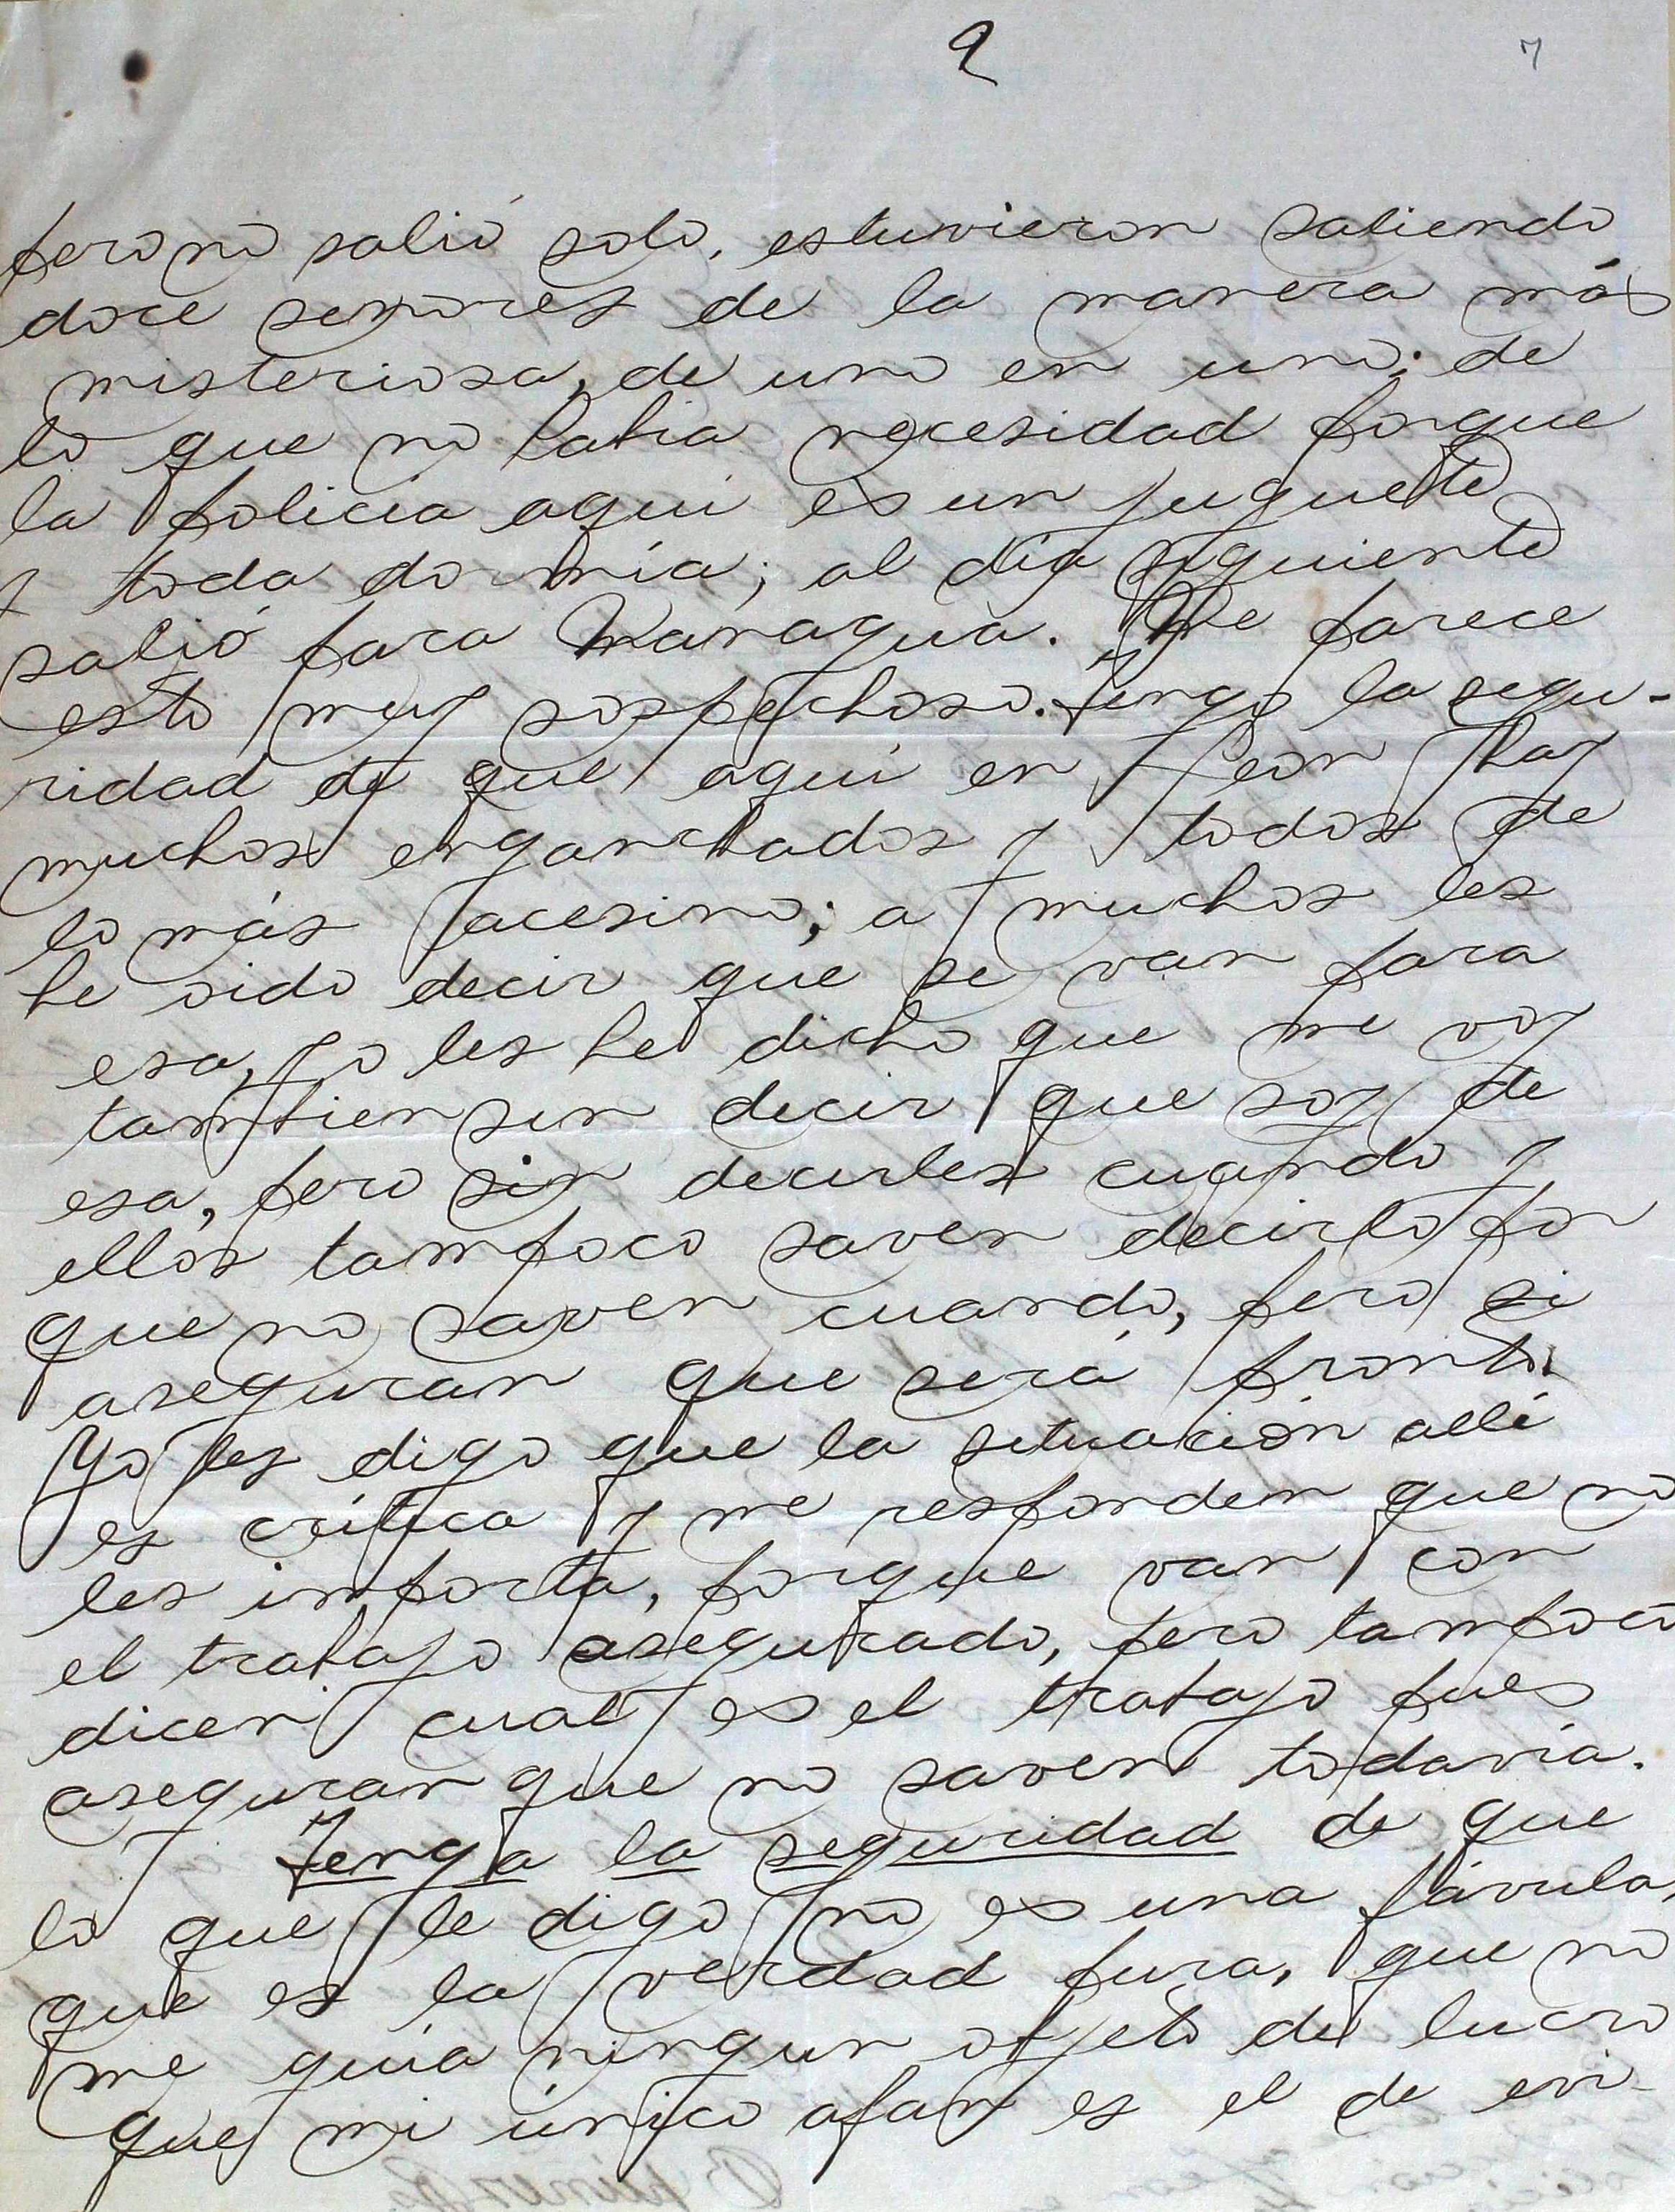 2
7
pero no salió solo, estuvieron saliendo
doce señores de la manera más
misteriosa, de uno en uno; de
lo que no habia necesidad porque
la policia aqui es un juguete
y toda dormía; al día siguiente
salió para Managua. Me parece
esto muy sospechoso. Tengo la segu-
ridad de que aquí en Leon hay
muchos enganchados y todos de
lo más acesino; a muchos les
he oido decir que se van para
esa, yo les he dicho que me voy
tambien sin decir que soy de
esa, pero sin decirles cuando y
ellos tampoco saven decirlo por
que no saven cuando, pero si
aseguran que será pronto.
Yo les digo que la situación allí
es crítica y me responden que no
les importa, porque van con
el trabajo asegurado, pero tampoco
dicen cual es el trabajo pues
aseguran que no saven todavía.
Tenga la seguridad de que
lo que le digo no es una fávula,
que es la verdad pura, que no
me guía ningun objeto de lucro
que mi único afan es el de evi-